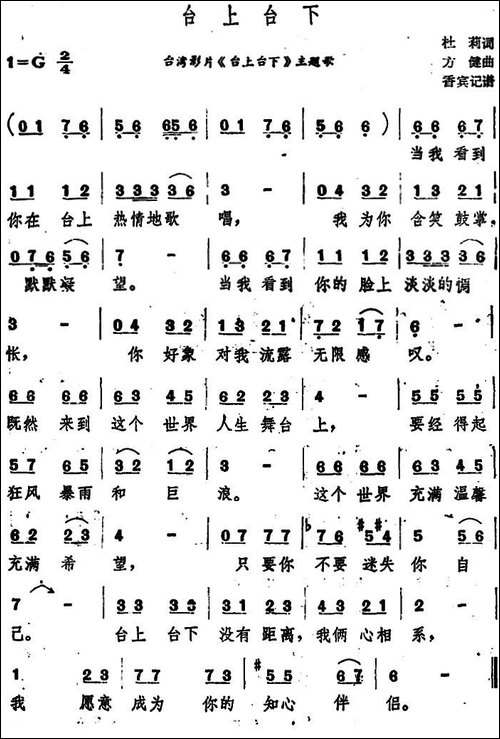 台上台下
1=G 2/4
台湾影片《台上台下》主题歌
杜莉词
方健曲
香宾记谱
(01 76 | 56 656 | 01 76 | 56 56) | 66 67 |
当我看到
11 12 | 333 36 | 3 - | 04 32 | 13 21 |
你在台上 热情地歌 唱, 我为你 含笑鼓掌,
076 56 | 7 - | 66 67 | 11 12 | 333 36 |
默默凝望。 当我看到 你的脸上 淡淡的惆
3 - | 04 32 | 13 21 | 72 17 | 6 - |
怅, 你好象 对我流露 无限感叹。
66 66 | 63 45 | 62 23 | 4 - | 55 55 |
既然来到 这个世界 人生舞台 上, 要经得起
57 65 | 32 12 | 3 - | 66 66 | 63 45 |
狂风暴雨 和巨浪。 这个世界 充满温馨
62 23 | 4 - | 07 77 | ♭76 #5#4 | 5 56 |
充满希望, 只要你 不要迷失 你自
7 - | 33 33 | 31 23 | 43 21 | 2 - |
己。 台上台下 没有距离,我俩心相系,
1 23 | 77 73 | #55 67 | 6 - ‖
我愿意 成为你的 知心伴侣。